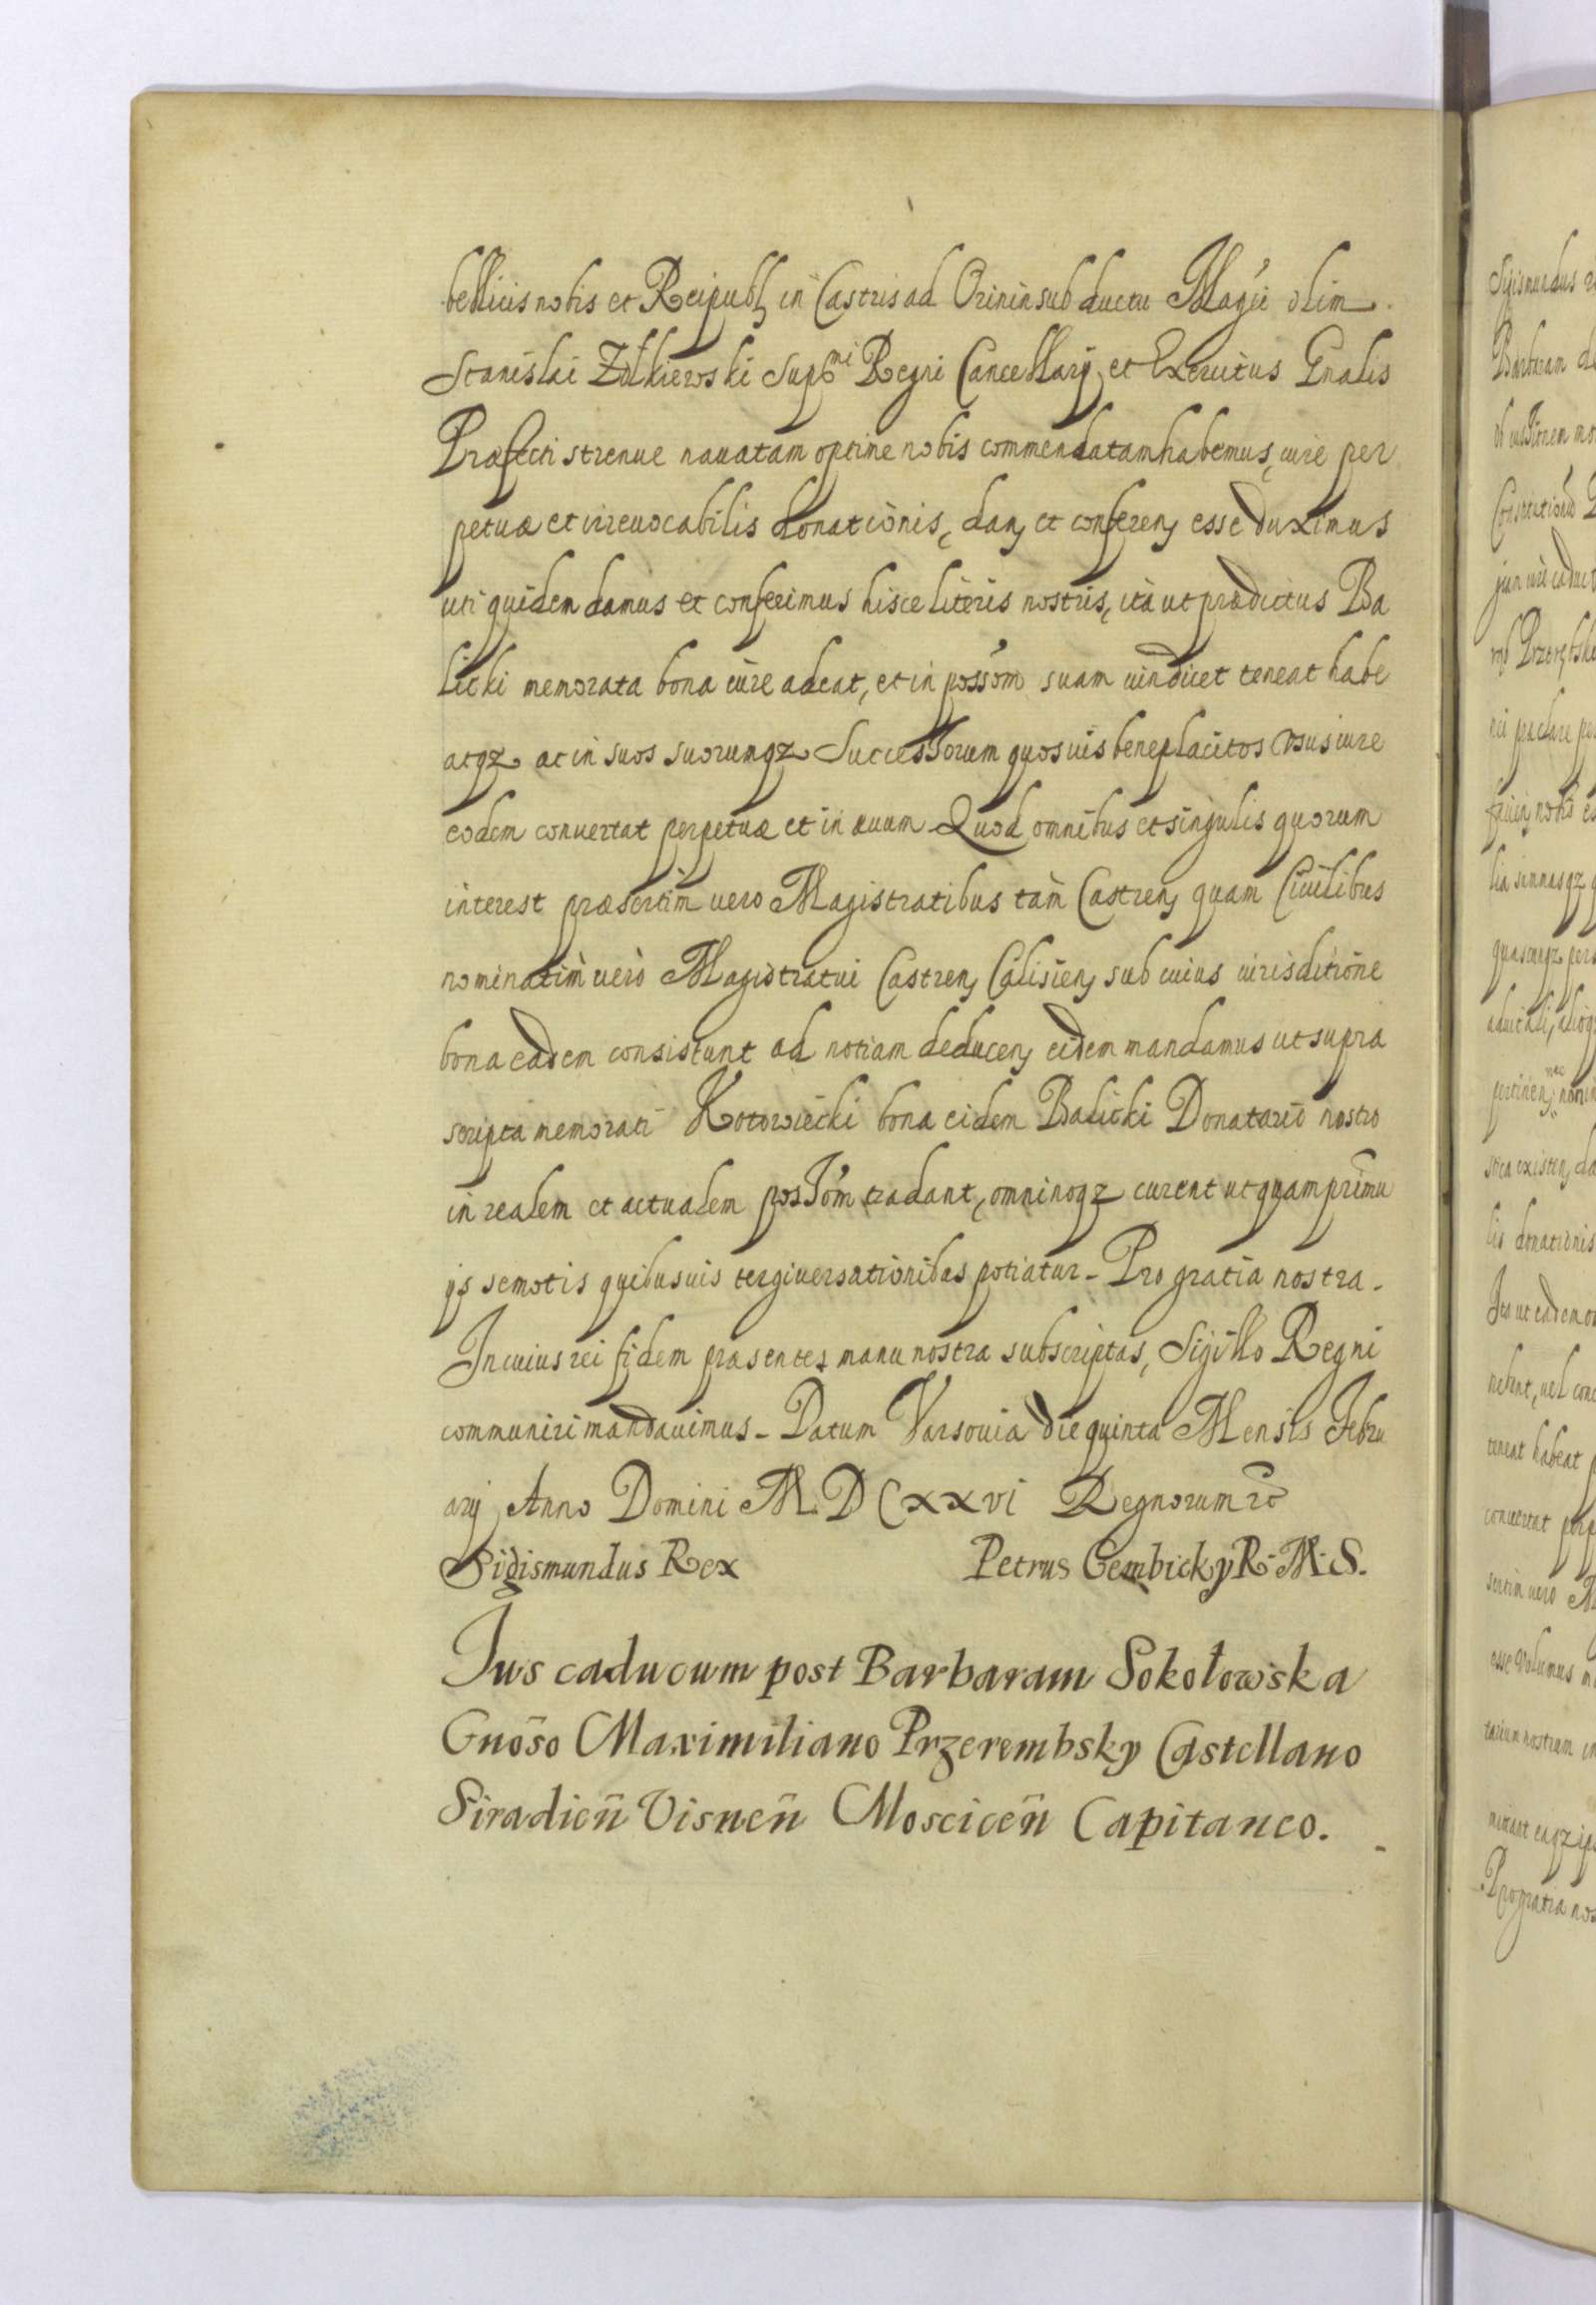 bellicis nobis et Reipubl in Castris ad Orinin sub ductu Magci olim
Stanislai Zolkiewski Suprmi Regni Cancellarij et Exercitus Gnalis
Præfecti strenue nauatam optime nobis commendatam habemus, iure per
petuæ et irreuocabilis donationis, dan et conferen esse duximus
uti quidem damus et conferimus hisce literis nostris, ità ut prædictus Ba
licki memorata bona iùre adeat, et in possom suam uindicet teneat habe
atqz ac in suos suorumqz Successorum quosuis beneplacitos Vsus iure
eodem conuertat perpetuæ et in æuum Quod omnibus et singulis quorum
interest præsertim uero Magistratibus tàm Castren quam Ciuilibus
nominatim uerò Magistratui Castren Calisien sub cuius iurisditione
bona eadem consistunt ad notiam deducen eidem mandamus ut supra
scripta memorati Kotowiecki bona eidem Balicki Donatario nostro
in realem et actualem possom tradant, omninoqz curent ut quamprimu
ijs semotis quibusuis tergiuersationibus potiatur - Pro gratia nostra -
In cuius rei fidem præsentes manu nostra subscriptas, Sigillo Regni
communiri mandauimus - Datum Varsouia die quinta Mensis Febru
arij Anno Domini M D C x x vi Regnorum etc
Sigismundus Rex Petrus Gembicky R. M. S.
Ius caducum post Barbaram Sokołowska
Gnõso Maximiliano Przerembsky Castellano
Siradień Visneñ Mosciceñ Capitaneo.